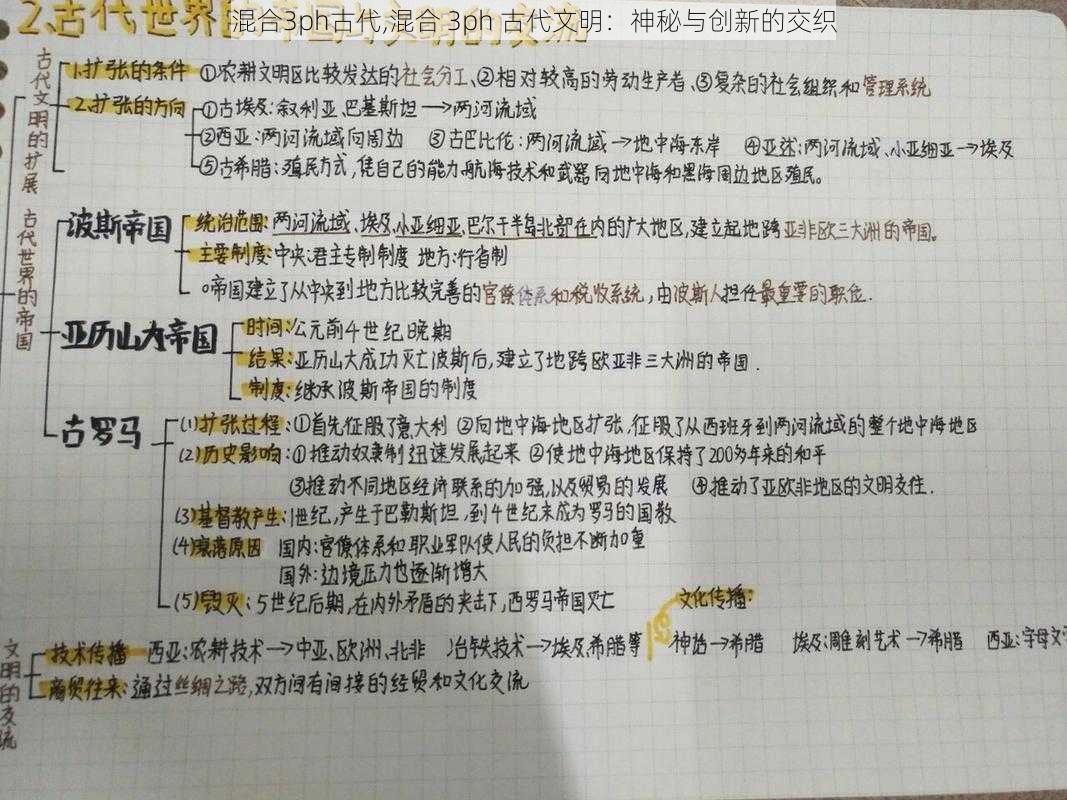 混合3ph古代,混合 3ph 古代文明：神秘与创新的交织
2.古代世界的帝国与文明的交流
古代文明的扩展
1.扩张的条件 ①农耕文明区比较发达的社会分工、②相对较高的劳动生产者、③复杂的社会组织和管理系统
2.扩张的方向 ①古埃及:叙利亚、巴基斯坦→两河流域
②西亚:两河流域向周边 ③古巴比伦:两河流域→地中海东岸 ④亚述:两河流域、小亚细亚→埃及
⑤古希腊:殖民方式,凭自己的能力、航海技术和武器,向地中海和黑海周边地区殖民。
古代世界的帝国
波斯帝国
统治范围:两河流域、埃及、小亚细亚、巴尔干半岛北部在内的广大地区,建立起地跨亚非欧三大洲的帝国。
主要制度:中央:君主专制制度 地方:行省制
帝国建立了从中央到地方比较完善的官僚体系和税收系统,由波斯人担任最重要的职位.
亚历山大帝国
时间:公元前4世纪晚期
结果:亚历山大成功灭亡波斯后,建立了地跨欧亚非三大洲的帝国.
制度:继承波斯帝国的制度
古罗马
(1)扩张过程:①首先征服了意大利 ②向地中海地区扩张,征服了从西班牙到两河流域的整个地中海地区
(2)历史影响:①推动奴隶制迅速发展起来 ②使地中海地区保持了200多年来的和平
③推动不同地区经济联系的加强,以及贸易的发展 ④推动了亚欧非地区的文明交往.
(3)基督教产生:1世纪,产生于巴勒斯坦,到4世纪末成为罗马的国教
(4)衰落原因 国内:官僚体系和职业军队使人民的负担不断加重
国外:边境压力也逐渐增大
(5)毁灭:5世纪后期,在内外矛盾的夹击下,西罗马帝国灭亡
文化传播:
文明的交流
技术传播 西亚:农耕技术→中亚、欧洲、北非 冶铁技术→埃及、希腊等 神话→希腊 埃及:雕刻艺术→希腊 西亚:字母文字
商贸往来:通过丝绸之路,双方间有间接的经贸和文化交流